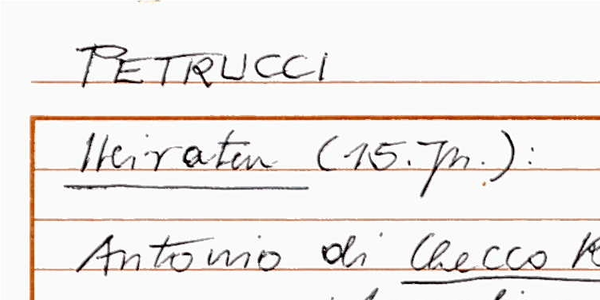 PETRUCCI
Heiraten (15. Jh.):
Antonio di Checco